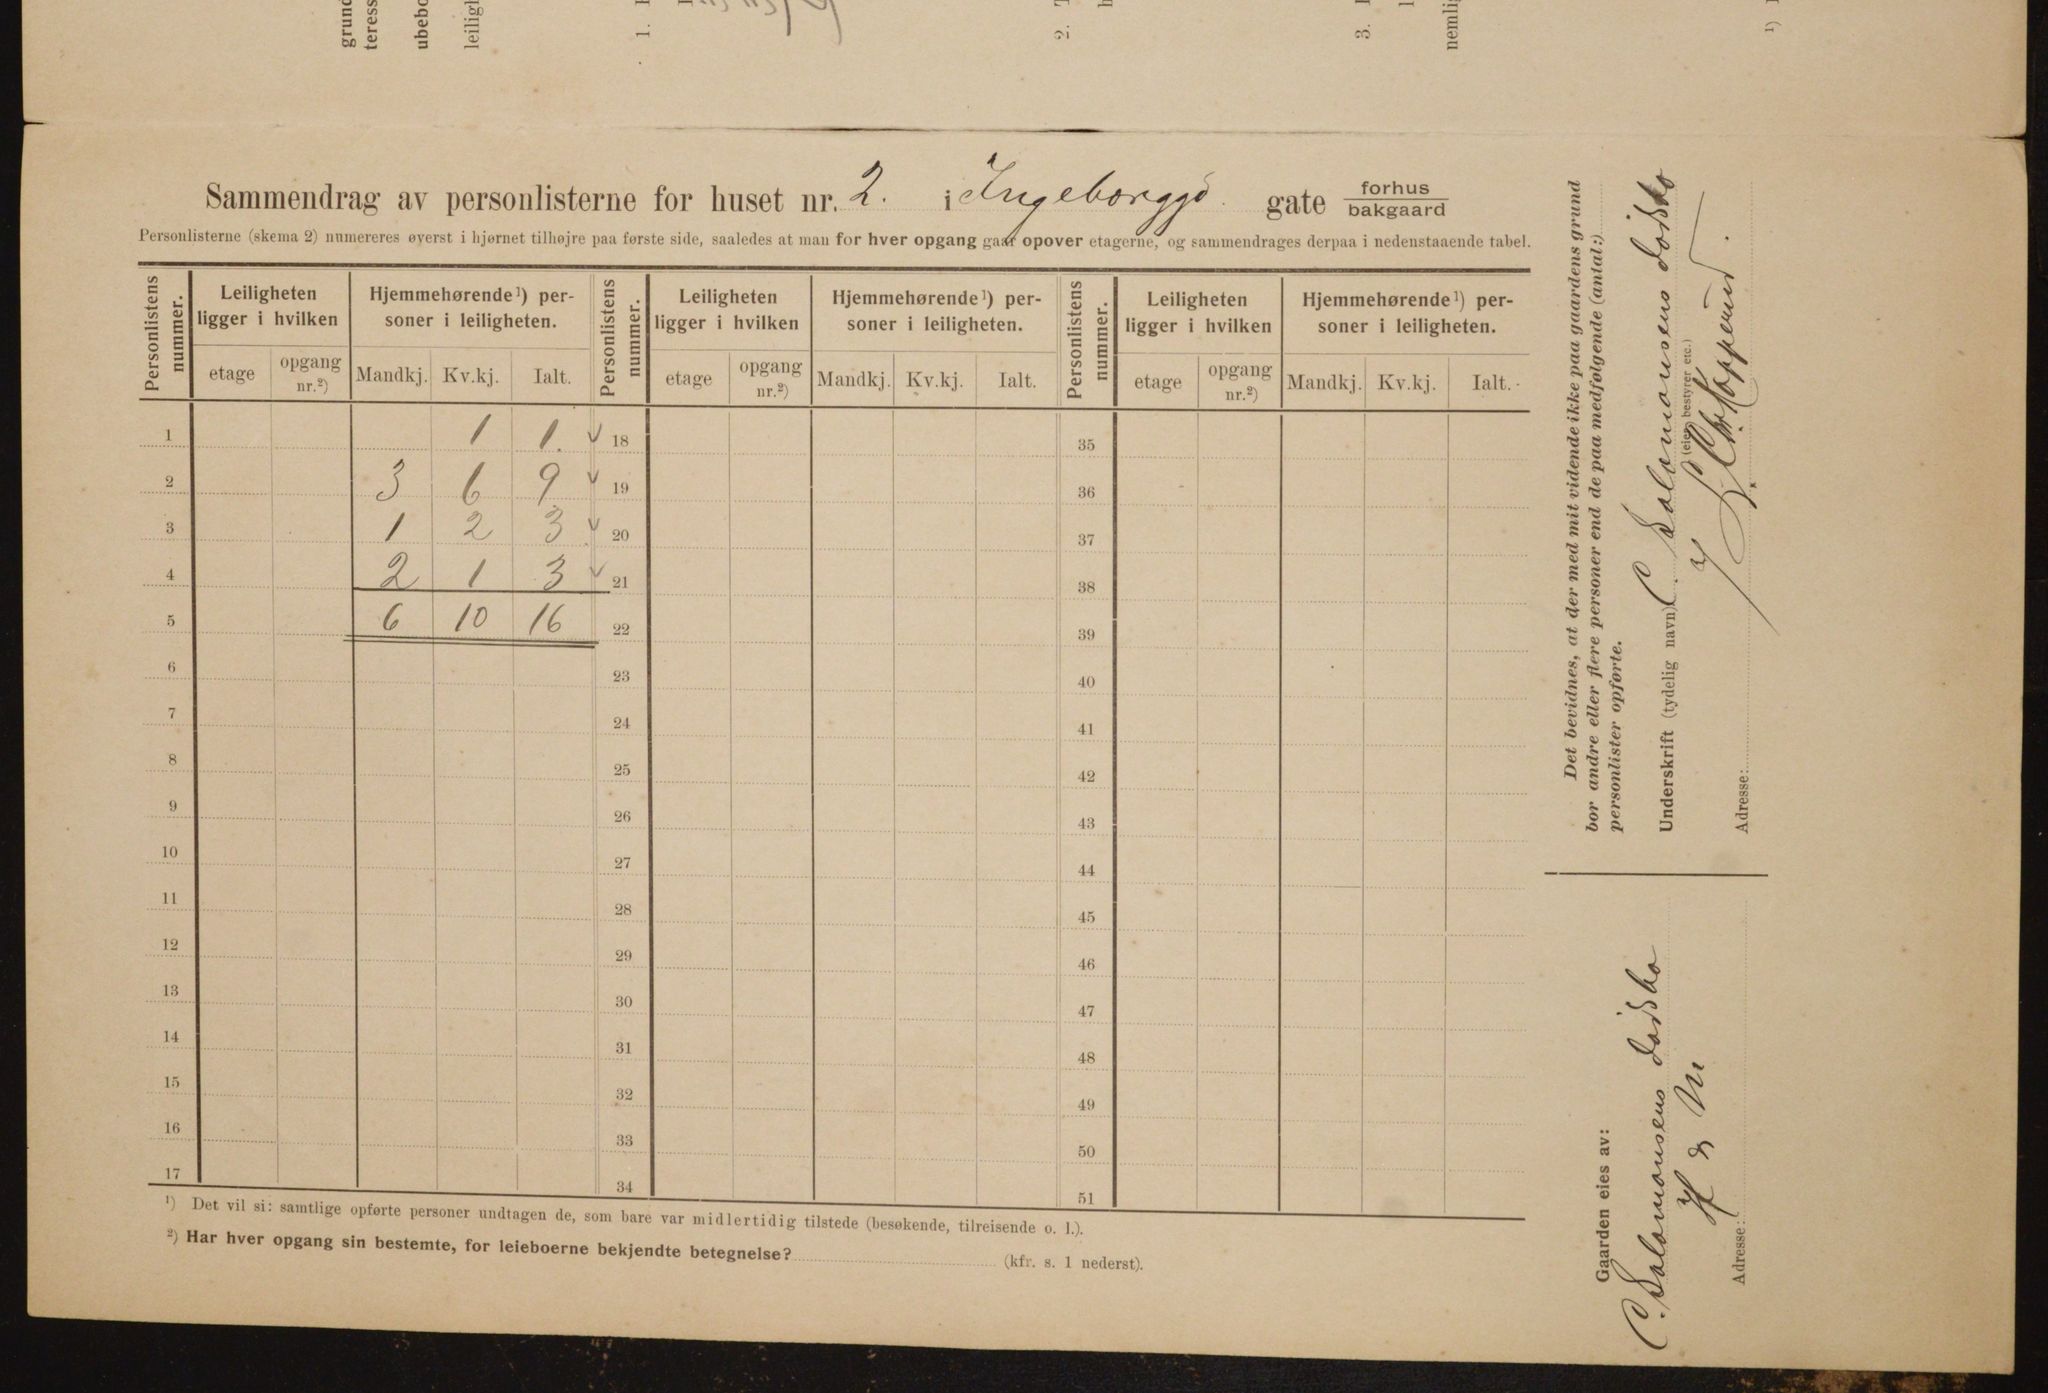 Sammendrag av personlisterne for huset nr. 2. i Ingeborggs gate forhus
bakgaard
Personlisterne (skema 2) numereres øverst i hjørnet tilhøjre paa første side, saaledes at man for hver opgang gaar opover etagerne, og sammendrages derpaa i nedenstaaende tabel.
Personlistens nummer. Leiligheten ligger i hvilken Hjemmehørende¹) personer i leiligheten. Personlistens nummer. Leiligheten ligger i hvilken Hjemmehørende¹) personer i leiligheten. Personlistens nummer. Leiligheten ligger i hvilken Hjemmehørende¹) personer i leiligheten.
etage opgang nr.²) Mandkj. Kv.kj. Ialt. etage opgang nr.²) Mandkj. Kv.kj. Ialt. etage opgang nr.²) Mandkj. Kv.kj. Ialt.
1 1 1. 18 35
2 3 6 9 19 36
3 1 2 3 20 37
4 2 1 3 21 38
5 6 10 16 22 39
6 23 40
7 24 41
8 25 42
9 26 43
10 27 44
11 28 45
12 29 46
13 30 47
14 31 48
15 32 49
16 33 50
17 34 51
¹) Det vil si: samtlige opførte personer undtagen de, som bare var midlertidig tilstede (besøkende, tilreisende o. l.).
²) Har hver opgang sin bestemte, for leieboerne bekjendte betegnelse? (kfr. s. 1 nederst).
Det bevidnes, at der med mit vidende ikke paa gaardens grund
bor andre eller flere personer end de paa medfølgende (antal:)
personlister opførte.
Underskrift (tydelig navn) C Salomonsens dødsbo
(eier, bestyrer etc.)
Adresse:
Gaarden eies av:
C. Salomonsens dødsbo
Adresse:
grund
teress
ubebo
leiligh
1.
2.
3.
nemlig
¹)